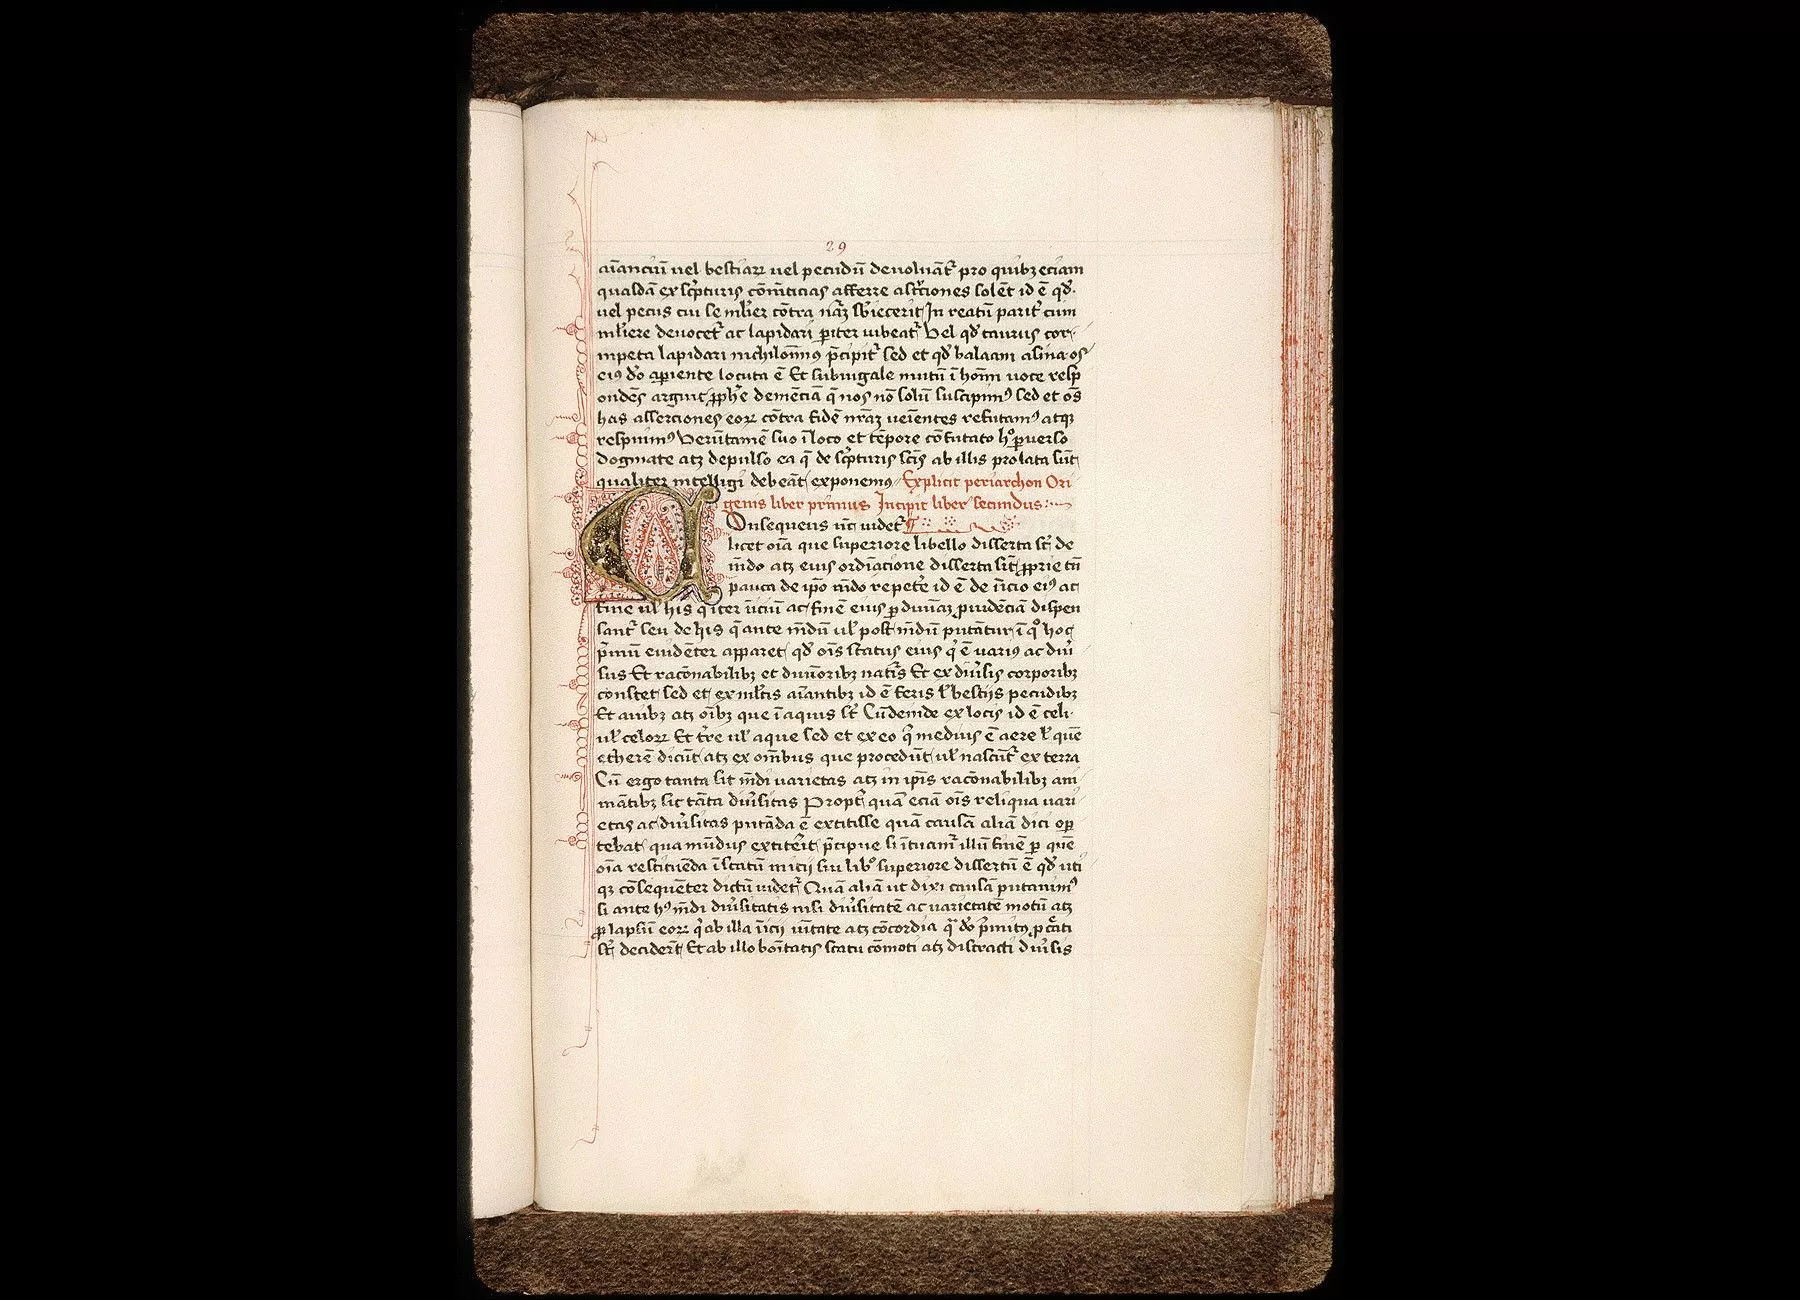 29
aīanciū uel bestiaꝝ uel pecudū deuoluāt᷑ pro quibꝫ eciam
quasdā ex sc̄pturis afferre solēt id ē qd̄
uel pecus cui se mlīer cōtra nāȝ In reatū parit᷑ cum
mlīere deuocet᷑ ac lapidari ꝑiter iubeat᷑ Vel qd̄ taurus cor
mpeta lapidari nichilomīnꝰ p̄cipit᷑ sed et qd̄ balaam asina os
eiꝰ dō apiente locuta ē Et subiugale mutū ī hoīm uoce resp
ondēs arguit ꝓphē demēciā q̄ nos nō solū suscipimꝰ sed et oēs
has asserciones eoꝝ cōtra fidē nrāȝ ueīentes refutamꝰ atqꝫ
respuimꝰ Verūtamē suo ī loco et tēpore cōfutato hͦ ꝑuerso
dogmate atꝫ depulso ea q̄ de sc̄pturis scīs ab illis prolata sūt
qualiter intelligi debeāt exponemꝰ Explicit periarchon Ori
genis liber primus Incipit liber secundus
COnsequens nūc uidet᷑
licet oīa que superiore libello disserta st̄ de
mūdo atꝫ eius ordīacione disserta sīt ꝓprie tn̄
pauca de ip̄o mūdo repetē id ē de īnicio eiꝰ ac
fine ul̄ his q̄ iter īniciū ac finē eius ꝑ diuināȝ ꝓuidēciā dispen
sant᷑ seu de his q̄ ante mūdū ul̄ post mūdū putātur ī qͦ hoc
p̄mū euidēter apparet qd̄ oīs status eius q̄ ē uariꝰ ac diū
sus Et racōnabilibꝫ et diuīoribꝫ natīs Et ex diūsis corporibꝫ
constet sed et ex mltīs aīantibꝫ id ē feris ul̄ bestijs pecudibꝫ
Et auibꝫ atꝫ oībꝫ que ī aquis st̄ Cū deinde ex locis id ē celi
ul̄ celoꝝ Et t̄re ul̄ aque sed et ex eo q̄ medius ē aere ul̄ quē
etherē dicūt atꝫ ex omībus que procedūt ul̄ nascūt᷑ ex terra
Cū ergo tanta sit mūdi uarietas atꝫ in ip̄is racōnabilibꝫ ani
mātibꝫ sit tāta diūsitas Propt̄ quā eciā oīs reliqua uari
etas ac diūsitas putāda ē extitisse quā causā aliā dici op̄
tebat qua mūdus extitēit p̄cipue si ītuam᷑ illū finē ꝑ quē
oīa restituēda ī statū inicij sui libͦ superiore dissertū ē qd̄ uti
qꝫ cōsequēter dictū uidet᷑ Quā aliā ut dixi causā putauimꝰ
si ante hꝰ mūdi diūsitatis nisi diūsitatē ac uarietatē motū atꝫ
ꝓlapsū eoꝝ q̄ ab illa īnicij uītate atꝫ cōcordia p̄mitꝰ ꝓcāti
st̄ deciderūt Et ab illo bonītatis statu cōmoti atꝫ distracti diūsis